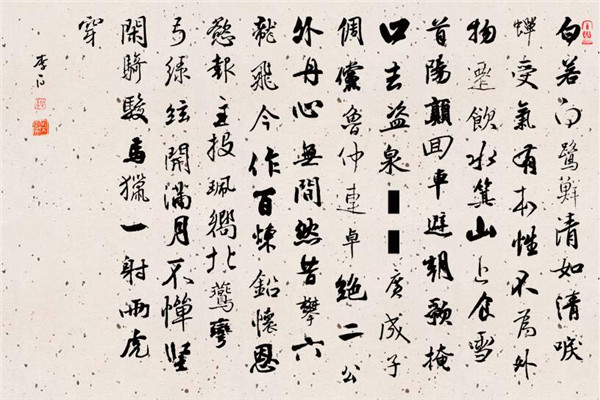 白若白鷺鮮清如清唳
蟬受氣有本性不為外
物遷飲水箕山上食雪
首陽顛回車避朝歌掩
口去盜泉廣成子
倜儻魯仲連卓絕二公
外丹心無間然昔攀六
龍飛今作百煉鉛懷恩
慾報主投珮嚮北鷰彎
弓綠絃開滿月不憚堅
閑騎駿馬獵一射兩虎
穿
李白